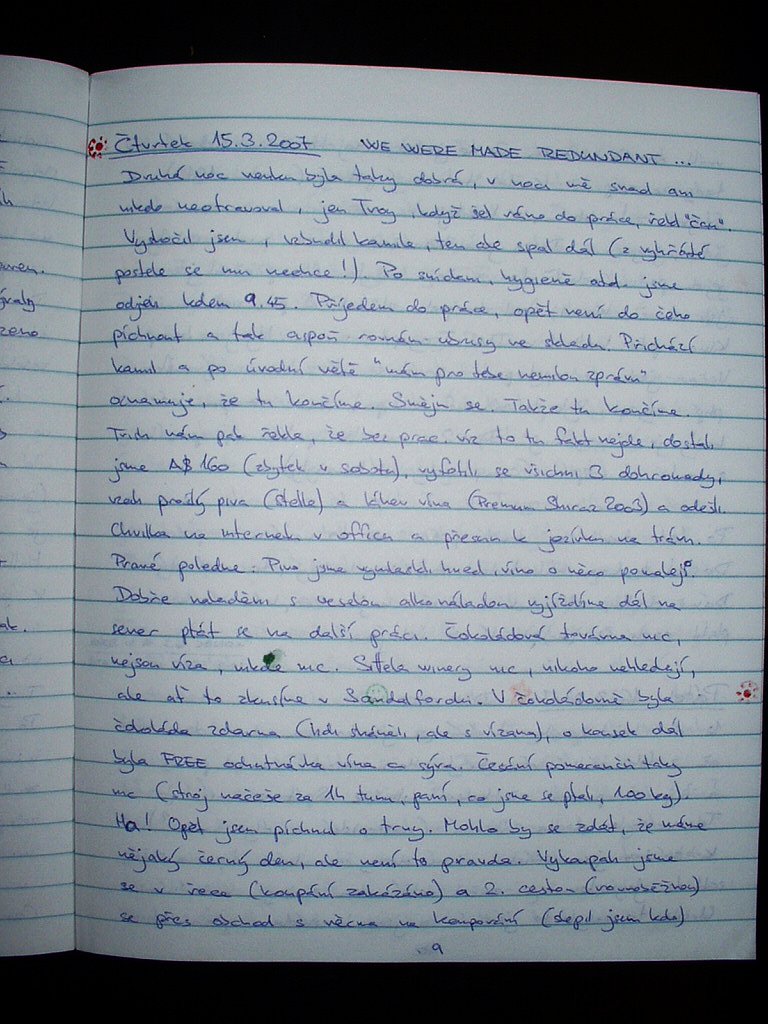 Čtvrtek 15.3.2007 WE WERE MADE REDUNDANT ...
Druhá noc venku byla taky dobrá, v noci mě snad ani
nikdo neotravoval, jen Troy, když šel ráno do práce, řekl "čau".
Vyskočil jsem, vzbudil Kamila, ten ale spal dál (z vyhřáté
postele se mu nechce!). Po snídani, hygieně atd. jsme
odjeli kolem 9.45. Přijedem do práce, opět není do čeho
píchnout a tak aspoň rovnám ubrusy ve skladu. Přichází
Kamil a po úvodní větě "mám pro tebe nemilou zprávu"
oznamuje, že tu končíme. Směju se. Takže tu končíme.
Trish nám pak řekla, že bez prac. víz to tu fakt nejde, dostali
jsme A$ 160 (zbytek v sobotu), vyfotili se všichni 3 dohromady,
vzali prošlý piva (Stella) a láhev vína (Premium Shiraz 2003) a odešli.
Chvilka na internetu v officu a přesun k jezírku na trávu.
Pravé poledne. Pivo jsme vyndaldi hned, víno o něco pomaleji.
Dobře naladěni s veselou alkonáladou vyjíždíme dál na
sever ptát se na další práci. Čokoládová továrna nic,
nejsou víza, nikde nic. Sittela winery nic, nikoho nehledejí,
ale ať to zkusíme v Sandalfordu. V čokoládovně byla
čokoláda zdarma (lidi sháněli, ale s vízama), o kousek dál
byla FREE ochutnávka vína a sýra. Česání pomerančů taky
nic (stroj načeše za 1h tunu, paní, co jsme se ptali, 100 kg).
Ha! Opět jsem píchnul o trny. Mohlo by se zdát, že máme
nějaký černý den, ale není to pravda. Vykoupali jsme
se v řece (koupání zakázáno) a 2. cestou (rovnoběžnou)
se přes obchod s věcma na kempování (slepil jsem kolo)
9